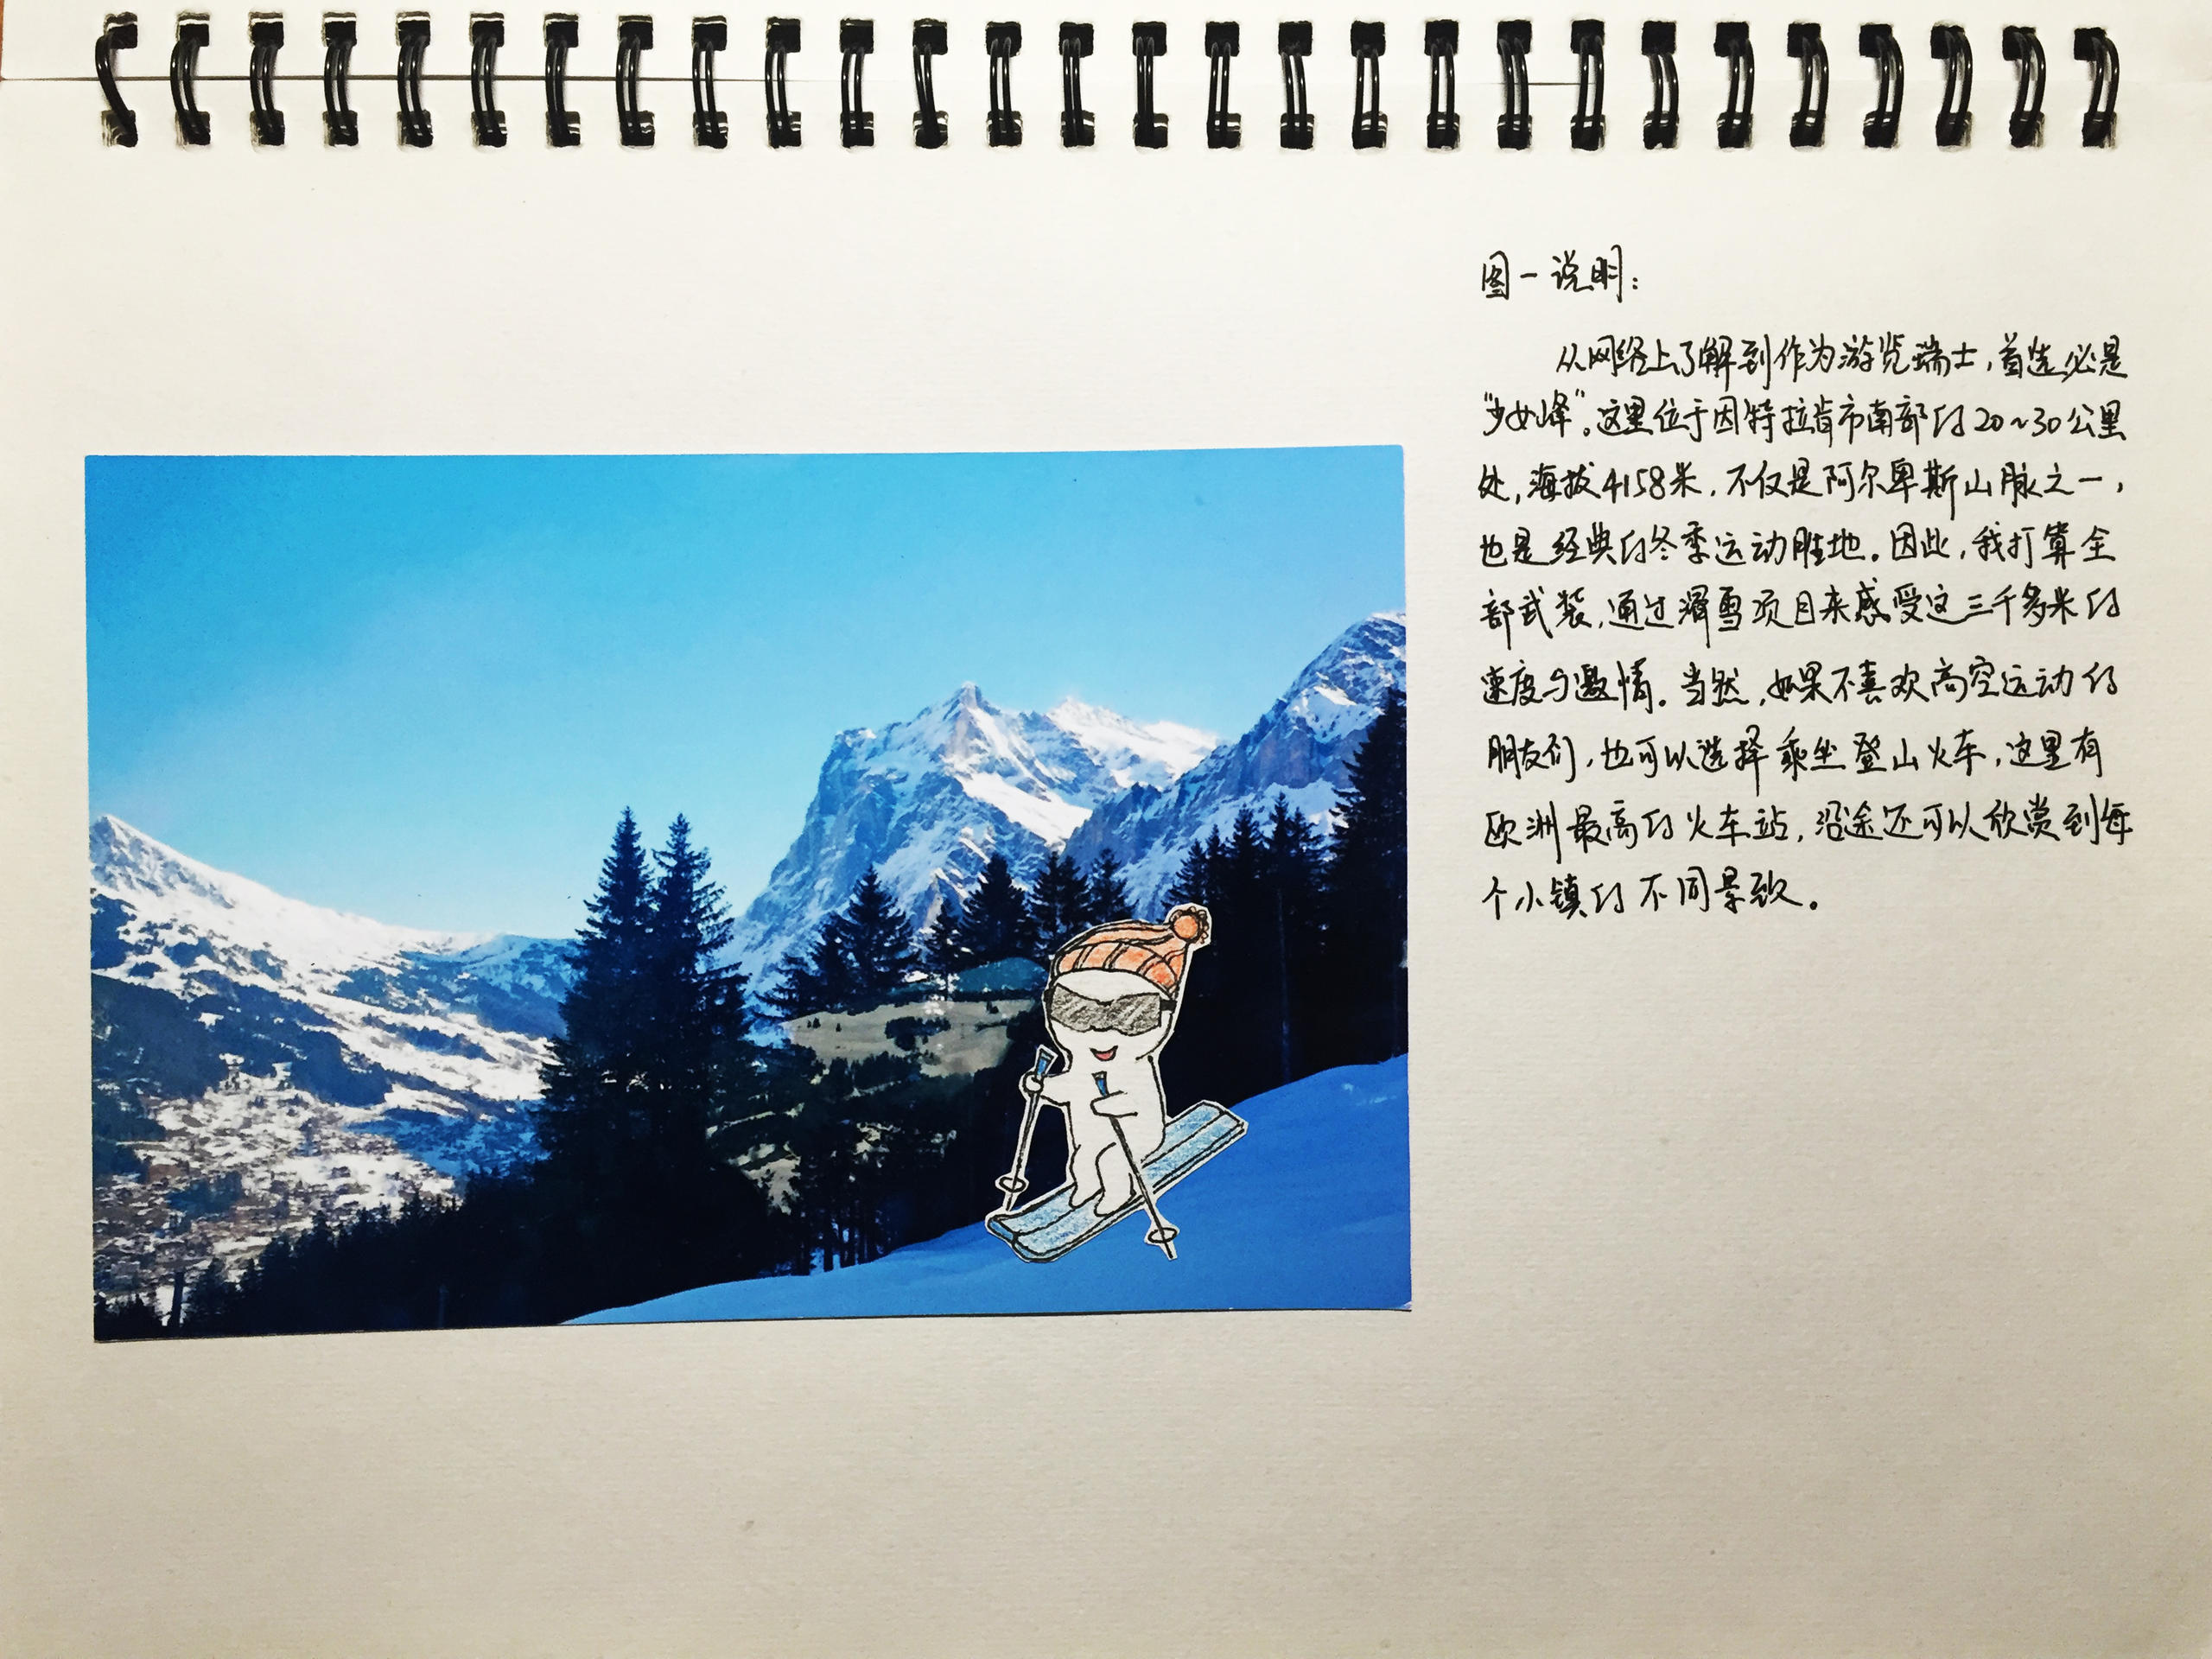 图一说明：
从网络上了解到作为游览瑞士，首选必是
“少女峰”。这里位于因特拉肯市南部的20~30公里
处，海拔4158米，不仅是阿尔卑斯山脉之一，
也是经典的冬季运动胜地。因此，我打算全
部武装，通过滑雪项目来感受这三千多米的
速度与激情。当然，如果不喜欢高空运动的
朋友们，也可以选择乘坐登山火车，这里有
欧洲最高的火车站，沿途还可以欣赏到每
个小镇的不同景致。